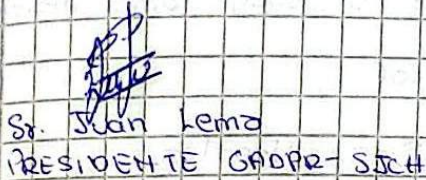 Sr. Juan Lema
PRESIDENTE GADPR-SJCH